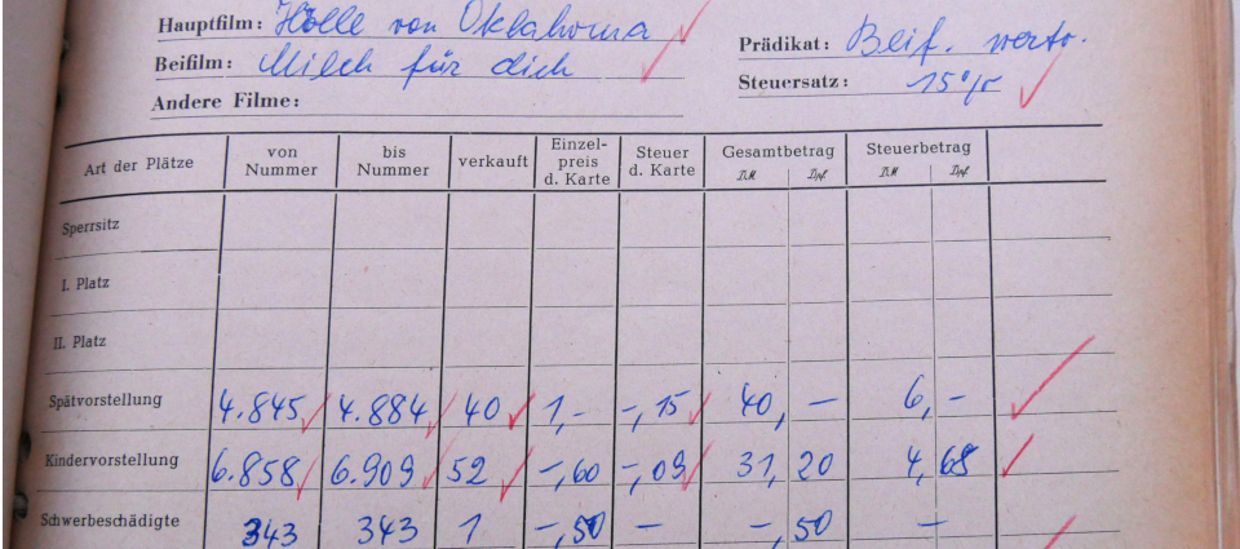 Hauptfilm: Hölle von Oklahoma
Beifilm: Milch für dich
Andere Filme:
Prädikat: Beif. wertv.
Steuersatz: 15%
Art der Plätze von Nummer bis Nummer verkauft Einzelpreis d. Karte Steuer d. Karte Gesamtbetrag DM Dpf Steuerbetrag DM Dpf
Sperrsitz
I. Platz
II. Platz
Spätvorstellung 4.845 4.884 40 1,- -,15 40,- 6,-
Kindervorstellung 6.858 6.909 52 -,60 -,09 31,20 4,68
Schwerbeschädigte 343 343 1 -,50 - -,50 -